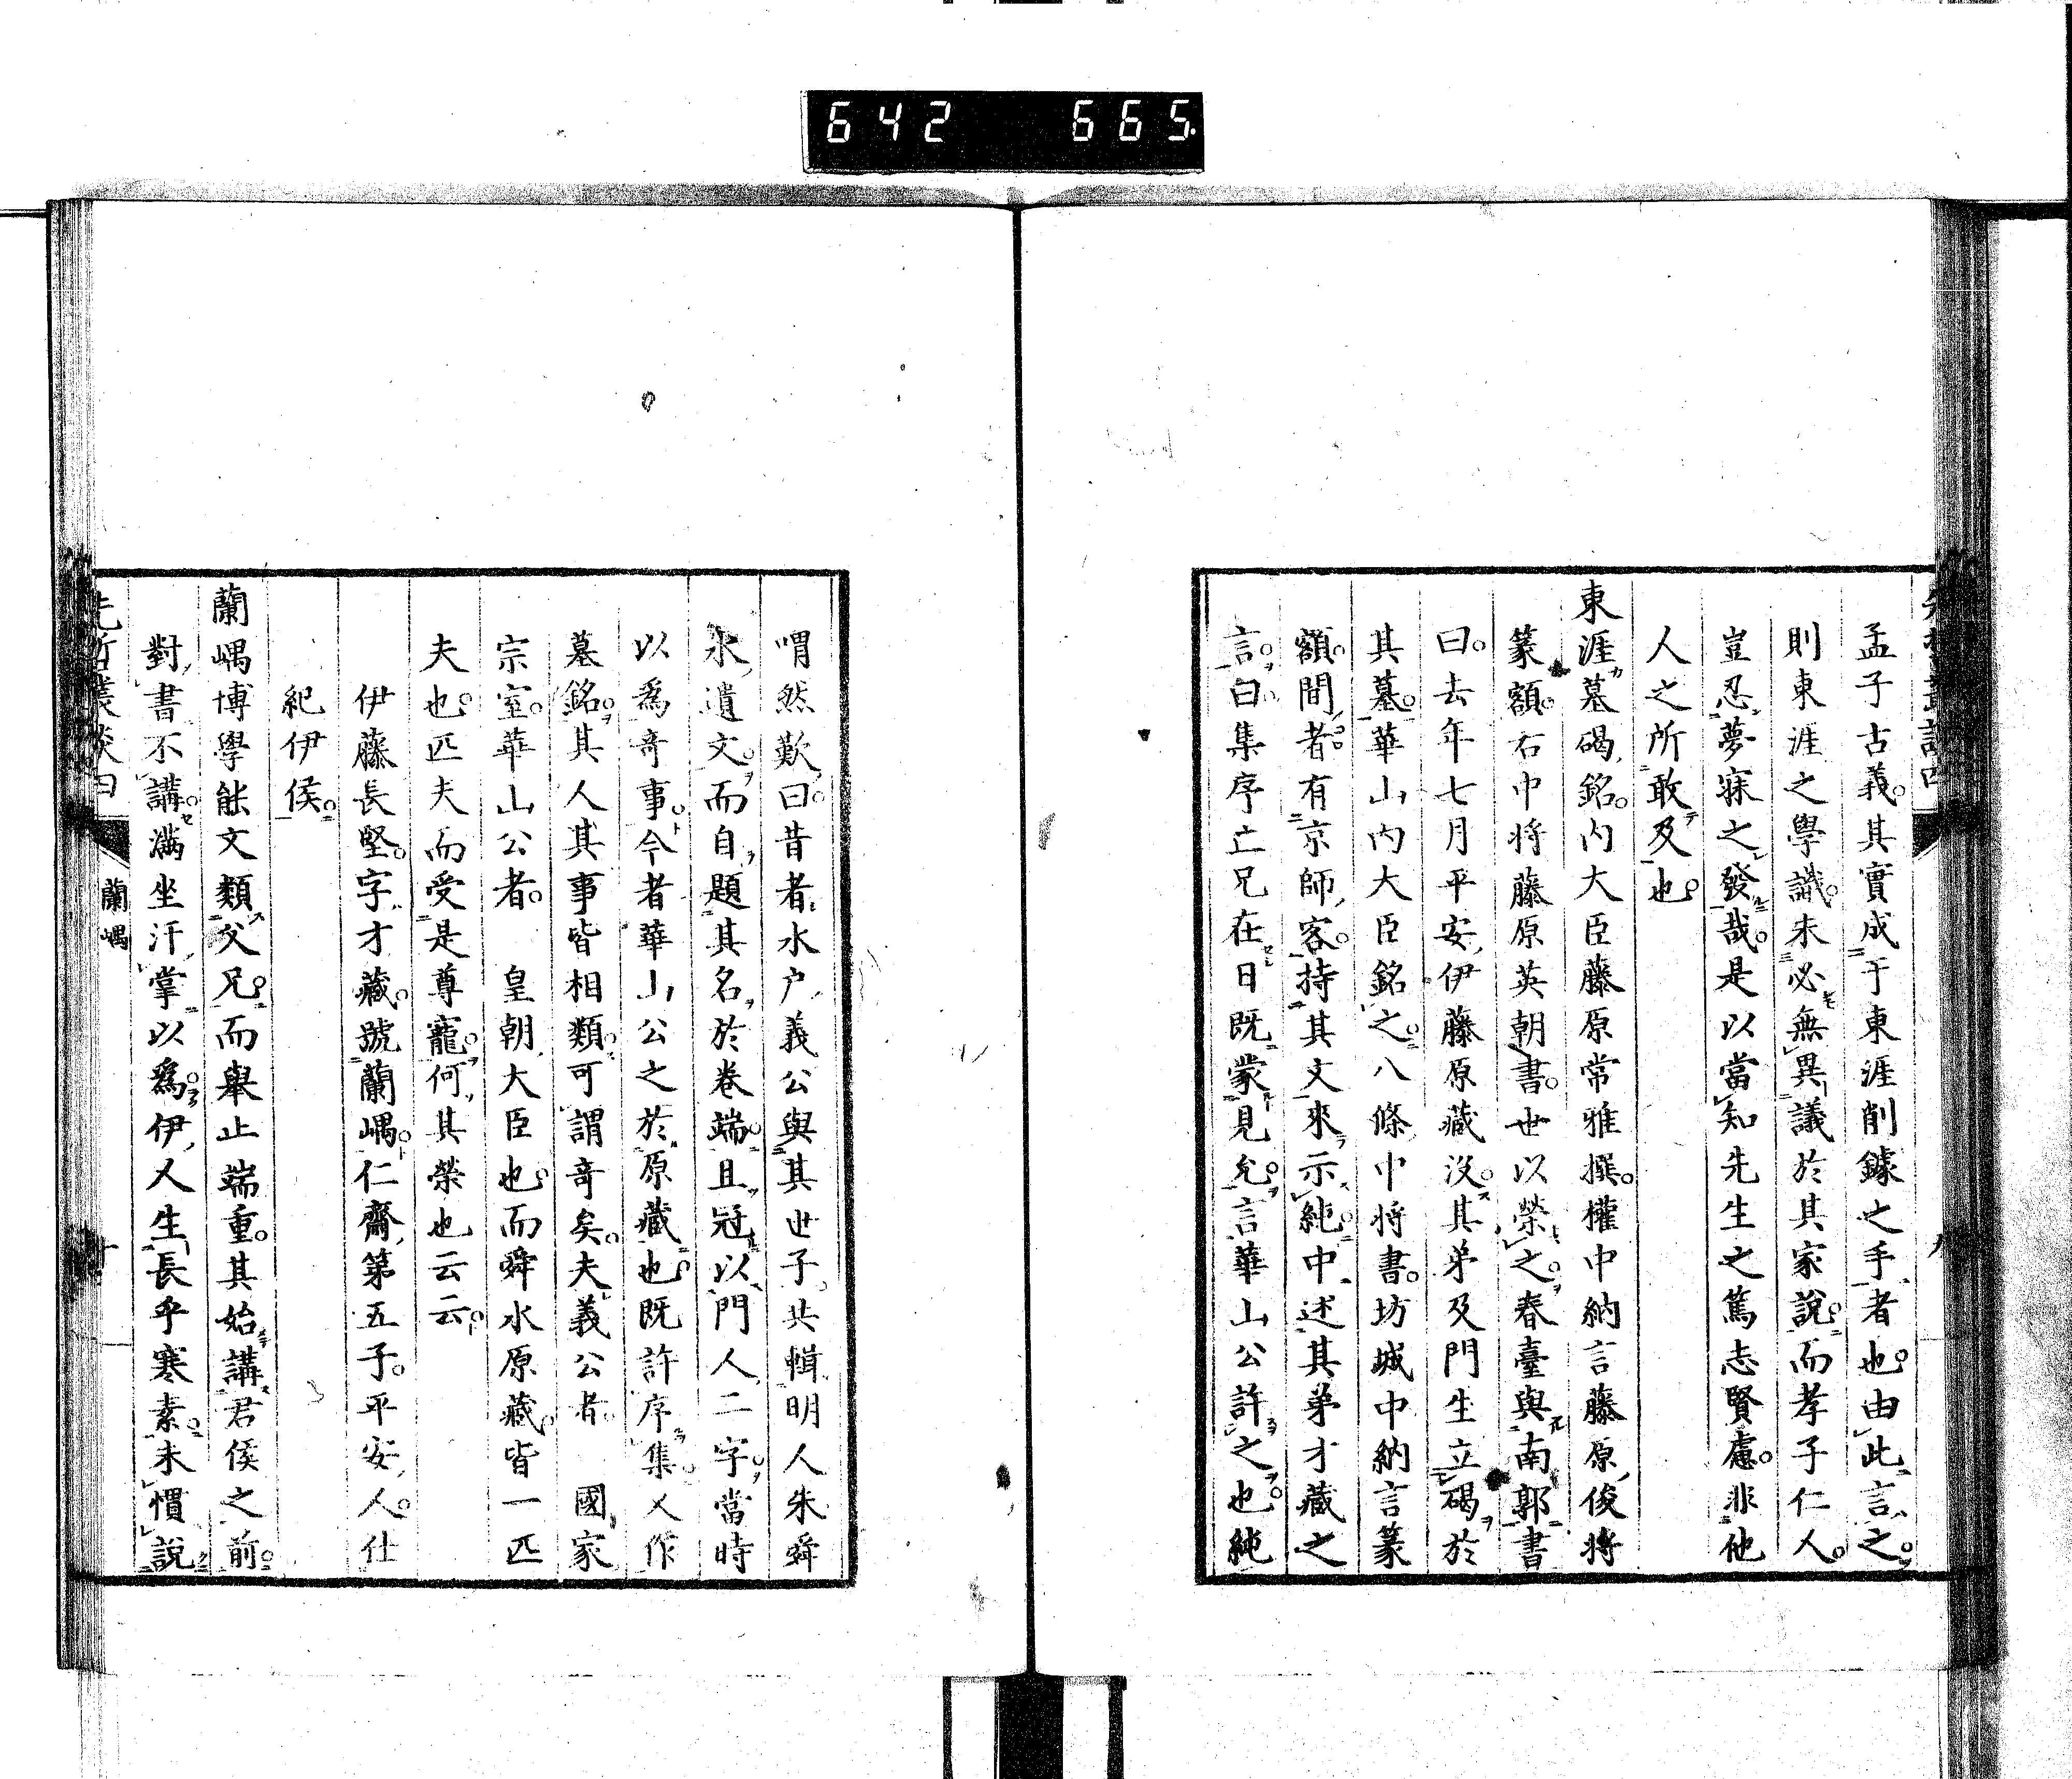 642 665.
孟子古義。其實成于東涯削鐻之手者也。由此言之。
則東涯之學識。未必無異議於其家說。而孝子仁人。
豈忍夢寐之發哉。是以當知先生之篤志賢慮。非他
人之所敢及也。
東涯墓碣銘。內大臣藤原常雅撰。權中納言藤原俊將
篆額。右中將藤原英朝書。世以榮之。春臺與南郭書
曰。去年七月平安伊藤原藏沒。其弟及門生立碣於
其墓。華山內大臣銘之。八條中將書。坊城中納言篆
額。間者有京師客。持其文來示純。中述其弟才藏之
言。曰集序亡兄在日既蒙見允。言華山公許之也。純
喟然歎曰。昔者水戶義公與其世子共輯明人朱舜
水遺文。而自題其名於卷端。且冠以門人二字。當時
以爲奇事。今者華山公之於原藏也。既許序集。又作
墓銘。其人其事皆相類。可謂奇矣。夫義公者。國家
宗室。華山公者。皇朝大臣也。而舜水原藏。皆一匹
夫也。匹夫而受是尊寵。何其榮也云云。
伊藤長堅。字才藏。號蘭嵎。仁齋第五子。平安人。仕
紀伊侯。
蘭嵎博學能文類父兄。而舉止端重。其始講君侯之前。
對書不講。滿坐汗掌。以爲伊人生長乎寒素。未慣說
先哲叢談四
蘭嵎
十